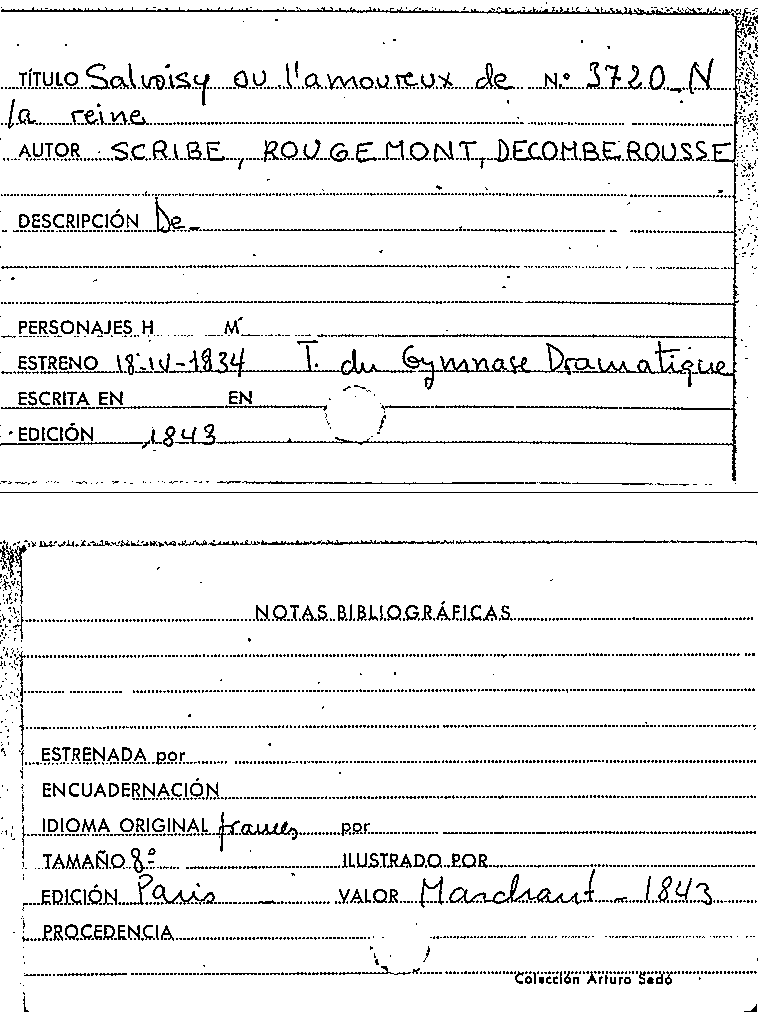 TÍTULO Salvoisy ou l'amoureux de N.º 3720 N
la reine
AUTOR SCRIBE, ROUGEMONT, DECOMBEROUSSE
DESCRIPCIÓN De
PERSONAJES H M
ESTRENO 18-IV-1834 T. du Gymnase Dramatique
ESCRITA EN EN
EDICIÓN 1843
NOTAS BIBLIOGRÁFICAS
ESTRENADA por
ENCUADERNACIÓN
IDIOMA ORIGINAL frances por
TAMAÑO 8º ILUSTRADO POR
EDICIÓN Paris VALOR Marchant - 1843
PROCEDENCIA
Colección Arturo Sedó